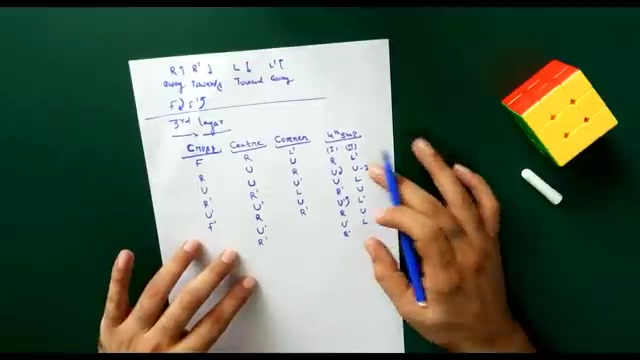 R↑ R'↓ L↓ L'↑
Away Towards Toward Away
F F'
3rd layer
Cross Centre Corner 4th step
(I) (II)
F R L' R L'
R U U
U U R U L
R' R' U' R' U
U' U' L U L'
F' R U R U
U' R' U L
R' R'